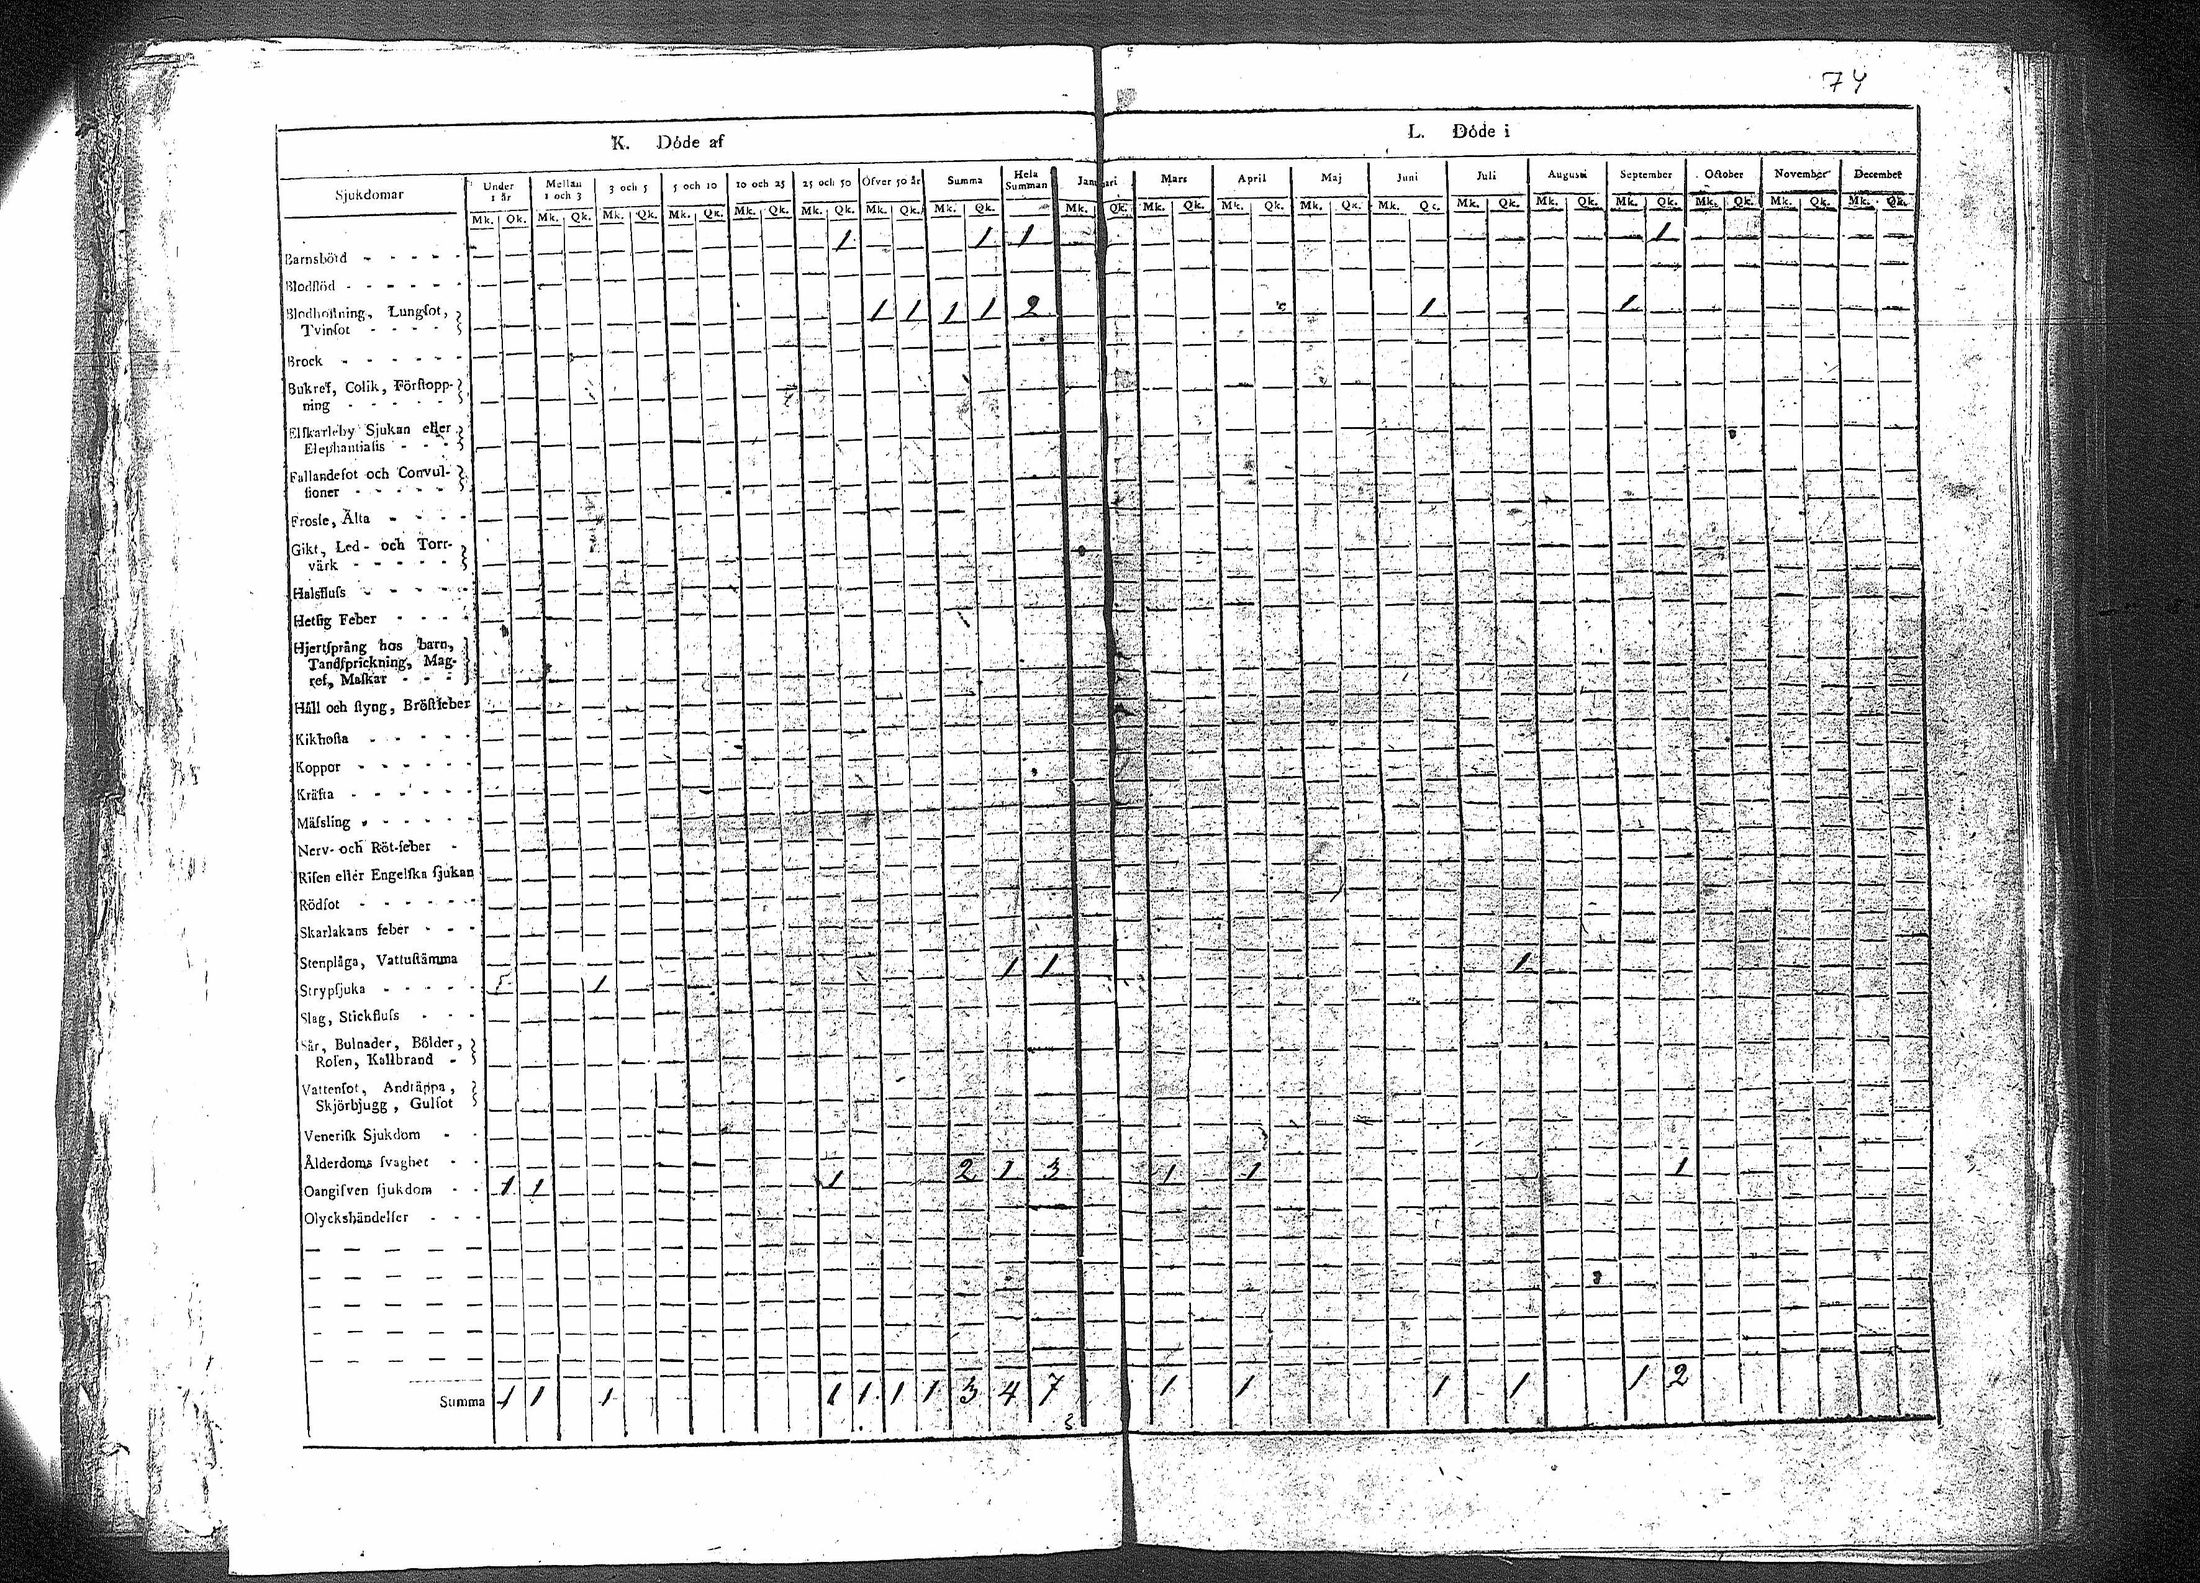 74
K. Döde af
L. Döde i
Sjukdomar Under 1 år Mellan 1 och 3 3 och 5 5 och 10 10 och 25 25 och 50 Öfver 50 år Summa Hela Summan Januari Mars April Maj Juni Juli Augusti September October November December
Mk. Qk. Mk. Qk. Mk. Qk. Mk. Qk. Mk. Qk. Mk. Qk. Mk. Qk. Mk. Qk. Mk. Qk. Mk. Qk. Mk. Qk. Mk. Qk. Mk. Qk. Mk. Qk. Mk. Qk. Mk. Qk. Mk. Qk. Mk. Qk. Mk. Qk.
Barnsbörd - - - - - 1 1 1 1
Blodflöd - - - - - -
Blodhoſtning, Lungſot,
Tvinſot - - - - 1 1 1 1 2 1 1
Brock - - - - - -
Bukref, Colik, Förſtopp-
ning - - - - -
Elfkarleby Sjukan eller
Elephantiaſis - - -
Fallandeſot och Convul-
ſioner - - - - -
Frosſe, Älta - - - -
Gikt, Led- och Torr-
värk - - - - -
Halsfluſs - - - - -
Hetſig Feber - - - -
Hjertſprång hos barn,
Tandſprickning, Mag-
ref, Maſkar - - -
Håll och ſtyng, Bröſtfeber
Kikhoſta - - - - -
Koppor - - - - - -
Kräfta - - - - - -
Mäſsling - - - - - -
Nerv- och Röt-feber -
Riſen eller Engelſka ſjukan
Rödſot - - - - - -
Skarlakans feber - - -
Stenplåga, Vattuſtämma
Strypſjuka - - - - - 1 1 1 1
Slag, Stickfluſs - - -
Sår, Bulnader, Bölder,
Roſen, Kallbrand -
Vattenſot, Andtäppa,
Skjörbjugg, Gulſot
Veneriſk Sjukdom - -
Ålderdoms ſvaghet - -
Oangifven ſjukdom - - 1 1 1 2 1 3 1 1 1
Olyckshändelſer - - -
Summa 1 1 1 1 1 1 1 3 4 7 1 1 1 1 1 2